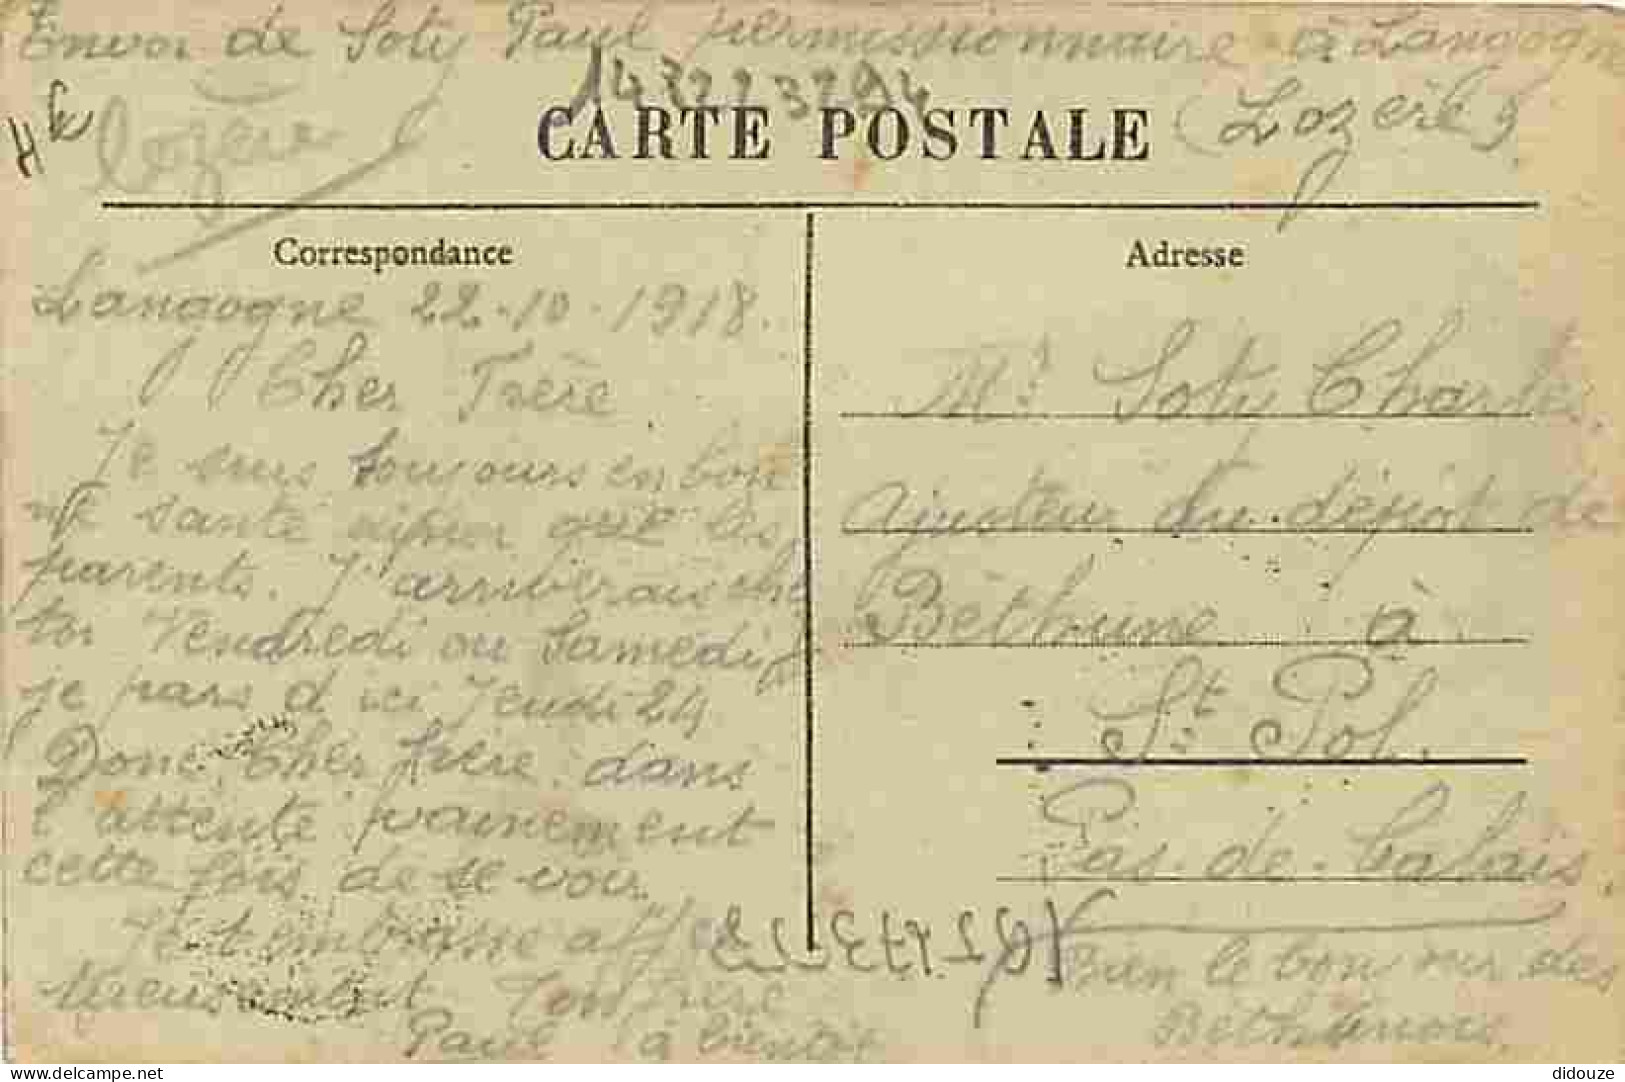 Envoi de Soty Paul permissionnaire à Langogne
(Lozère)
lozère
CARTE POSTALE
Correspondance
Langogne 22-10-1918.
Cher Frère
Je suis toujours en bon
ne santé ainsi que les
parents. J'arriverais che
toi Vendredi ou Samedi
je pars d'ici Jeudi 24
Donc, Cher frère, dans
l'attente vainement
cette fois de se voir
Je t'embrasse affec
tueusement Ton frère
Paul à bientôt
Adresse
Mr Soty Charles,
Ajusteur du dépôt de
Béthune à
St Pol.
Pas-de-Calais,
Bien le bonjour des
Béthunois.
didouze